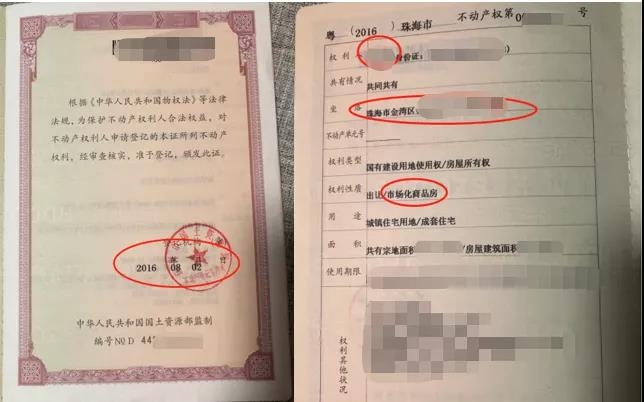 根据《中华人民共和国物权法》等法律
法规，为保护不动产权利人合法权益，对
不动产权利人申请登记的本证所列不动产
权利，经审查核实，准予登记，颁发此证。
登记机构（章）
2016 年 08 月 02 日
中华人民共和国国土资源部监制
编号№ D 44
粤（2016）珠海市 不动产权第0 号
权利人 身份证：
共有情况 共同共有
坐落 珠海市金湾区
不动产单元号
权利类型 国有建设用地使用权/房屋所有权
权利性质 出让/市场化商品房
用途 城镇住宅用地/成套住宅
面积 共有宗地面积 /房屋建筑面积
使用期限
权利其他状况